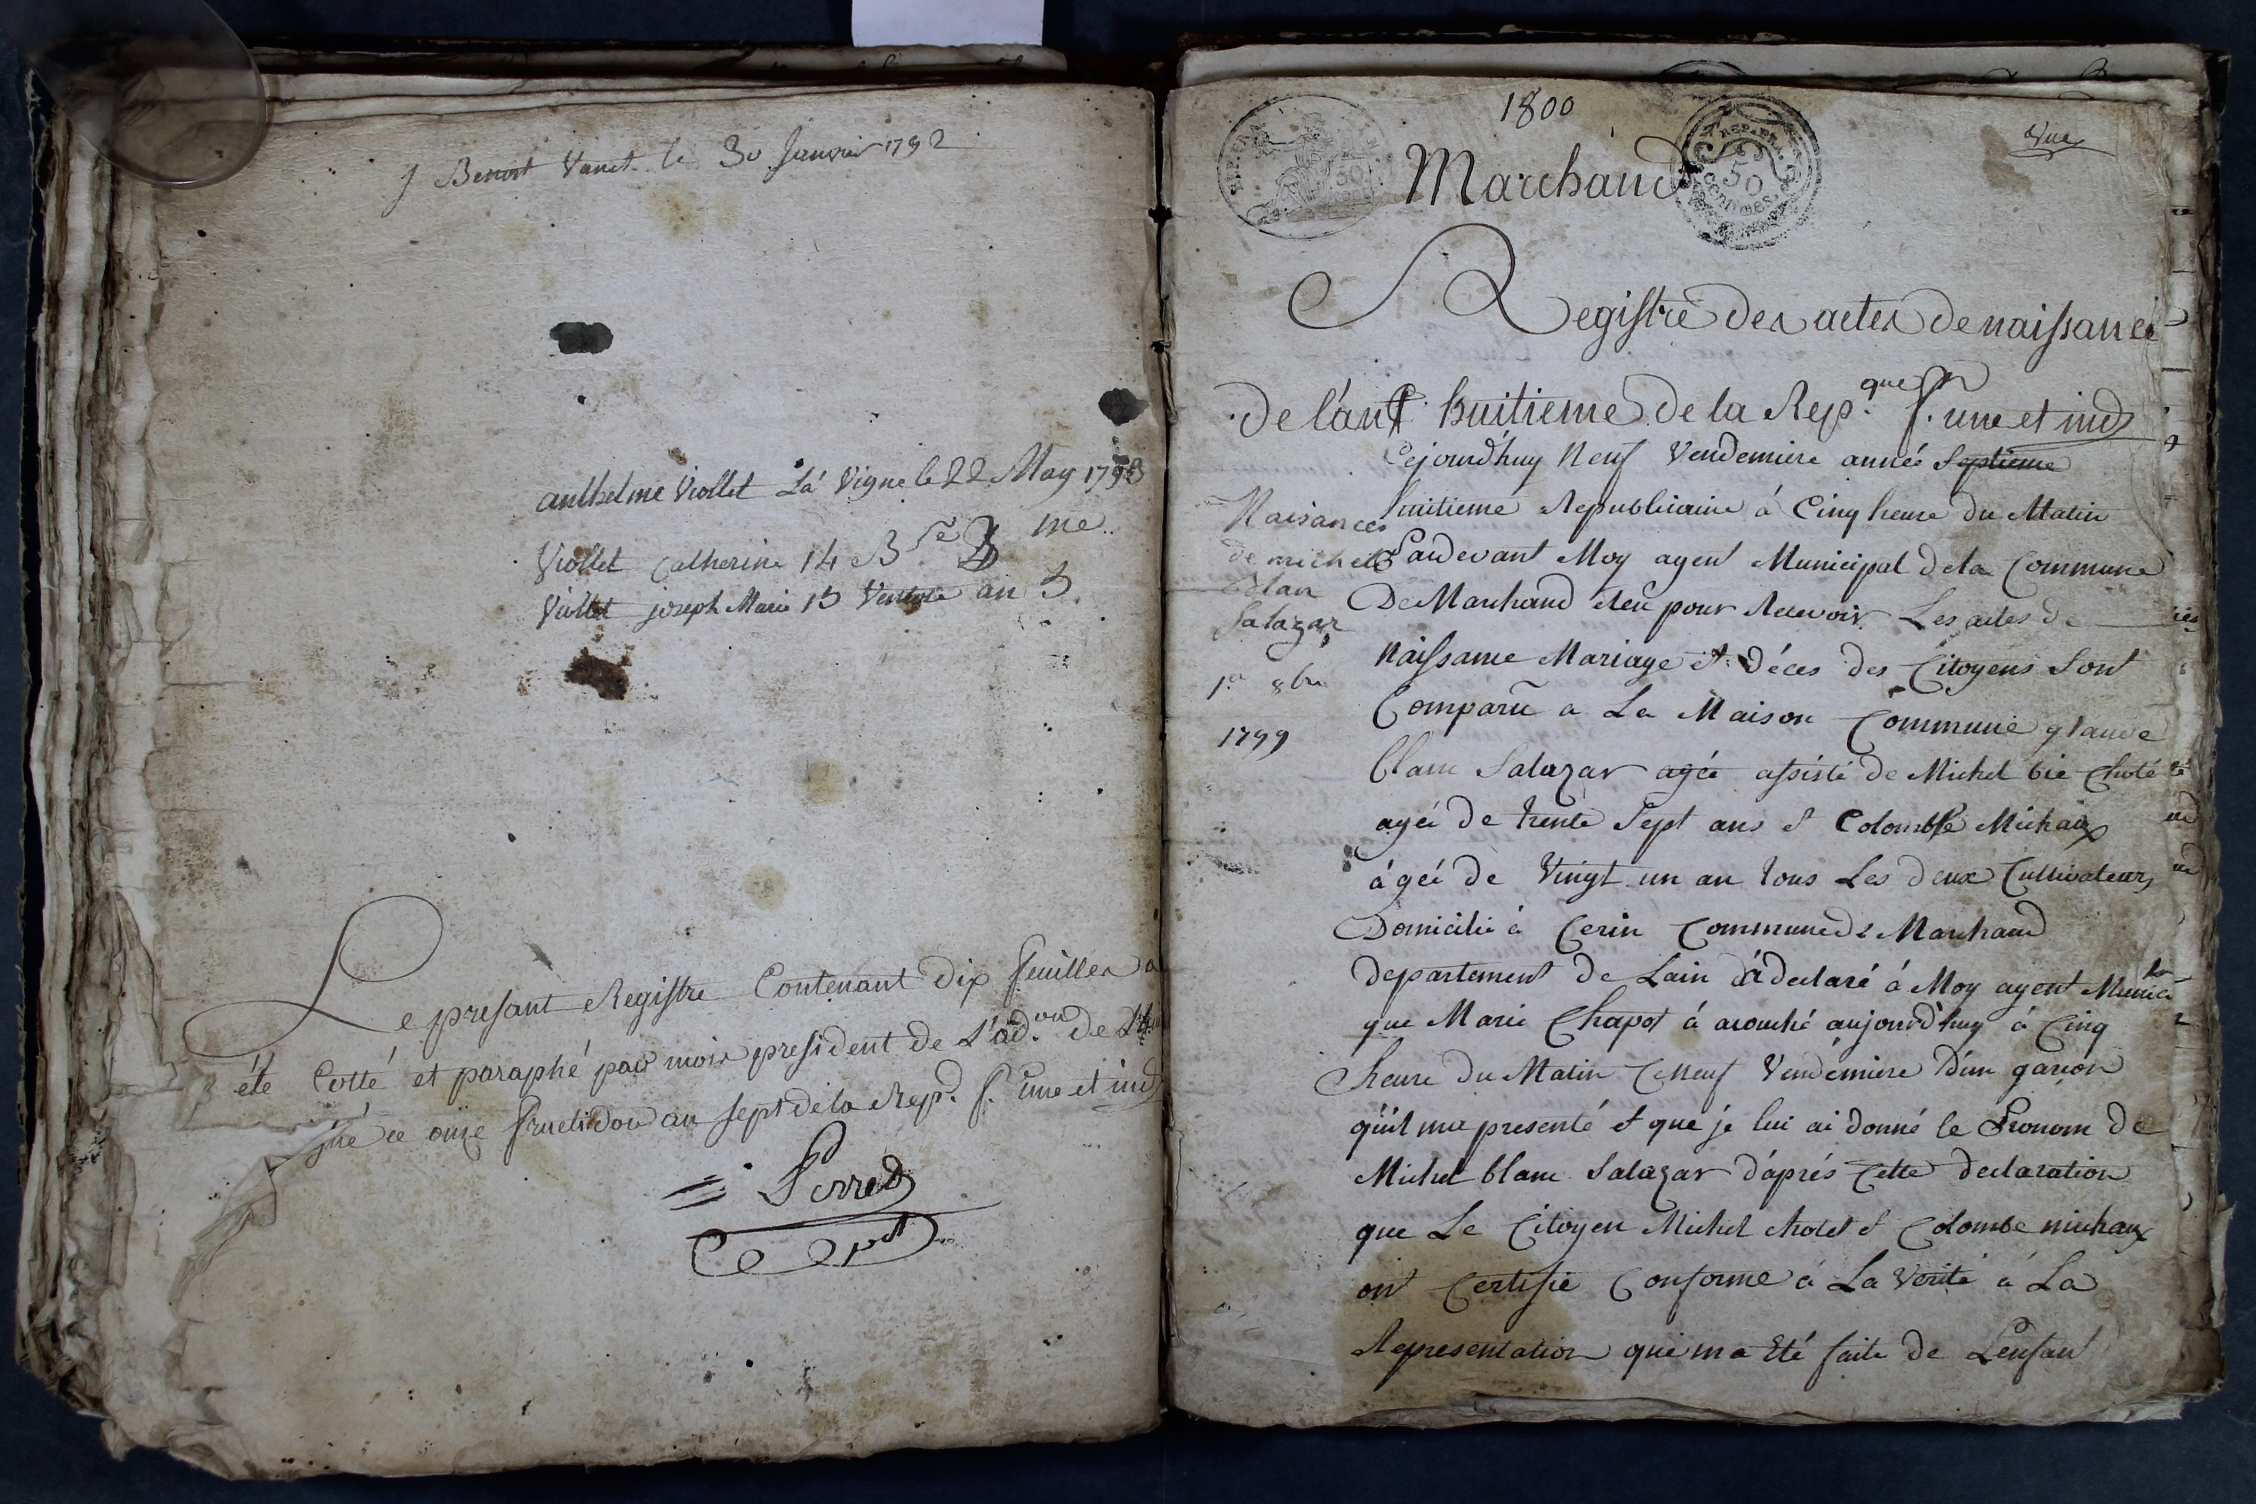 j Benoit Vanet le 30 Janvier 1792
anthelme Viollet La Vigne le 22 May 1793
Viollet Catherine 14 me
Viollet joseph Marie 15 Ventose an 5
Le presant Registre Contenant dix feuilles a
été Cotté et paraphé par mois president de L'ad.on de
ce onze fructidor an sept de la Rep. f. une et ind
Perret
pdt
1800
REP. FRA.
50
REP. FRA.
50
CENTIMES
Vue
Marchand
Registre des actes de naissance
de l'an huitieme de la Rep.que f. une et ind
Cejourd'huy Neuf Vendemiere année Septieme
huitieme Republicaine á Cinq heure du Matin
Pardevant Moy agent Municipal de la Commune
De Marchand Eleu pour Recevoir Les actes de
Naissance Mariage et déces des Citoyens Sont
Comparu a La Maison Commune
blanc Salazar agée assisté de Michel Cholé
agéé de trente Sept ans et Colombe Michaux
ágéé de Vingt un an tous Les deux Cultivateurs
Domicilié á Cerin Commune de Marchand
departement de Lain á declaré á Moy agent Munic
que Marie Chapot á acouché aujourd'huy á Cinq
heure du Matin Ce Neuf Vendémiere d'un garçon
quil ma presenté et que je lui ai donné le Pronom de
Michel blanc Salazar d'aprés Cette declaration
que Le Citoyen Michel cholet et Colombe michaux
ont Certifié Conforme á La Verité á La
Representation qui ma Eté faite de Lenfant
Naisances
de michel
Blan
Salazar
1.er 8bre
1799